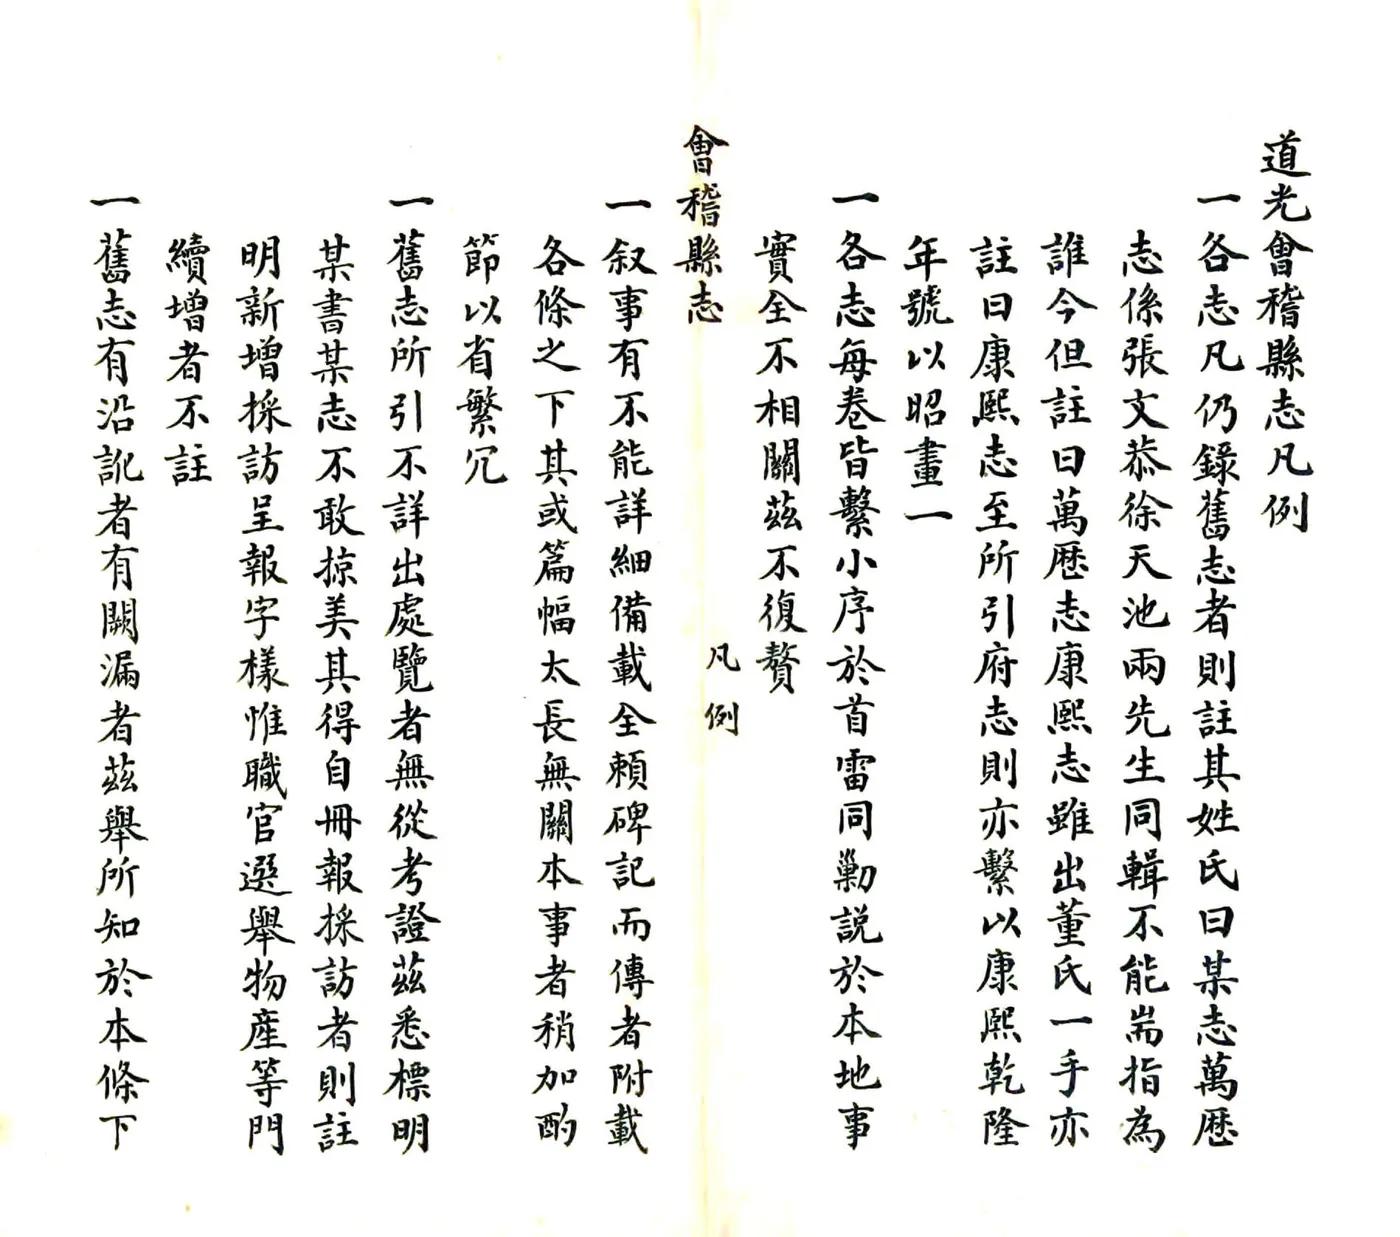 道光會稽縣志凡例
一各志凡仍錄舊志者則註其姓氏曰某志萬歷
志係張文恭徐天池兩先生同輯不能耑指為
誰今但註曰萬歷志康熙志雖出董氏一手亦
註曰康熙志至所引府志則亦繫以康熙乾隆
年號以昭畫一
一各志每卷皆繫小序於首雷同勦説於本地事
實全不相關茲不復贅
會稽縣志
凡例
一叙事有不能詳細備載全賴碑記而傳者附載
各條之下其或篇幅太長無關本事者稍加酌
節以省繁冗
一舊志所引不詳出處覽者無從考證茲悉標明
某書某志不敢掠美其得自冊報採訪者則註
明新增採訪呈報字樣惟職官選舉物産等門
續增者不註
一舊志有沿訛者有闕漏者茲舉所知於本條下